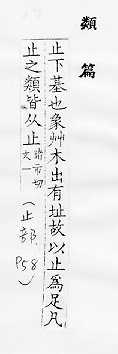 類篇
止下基也象艸木出有址故以止為足凡
止之類皆从止諸市切文一(止部P58)